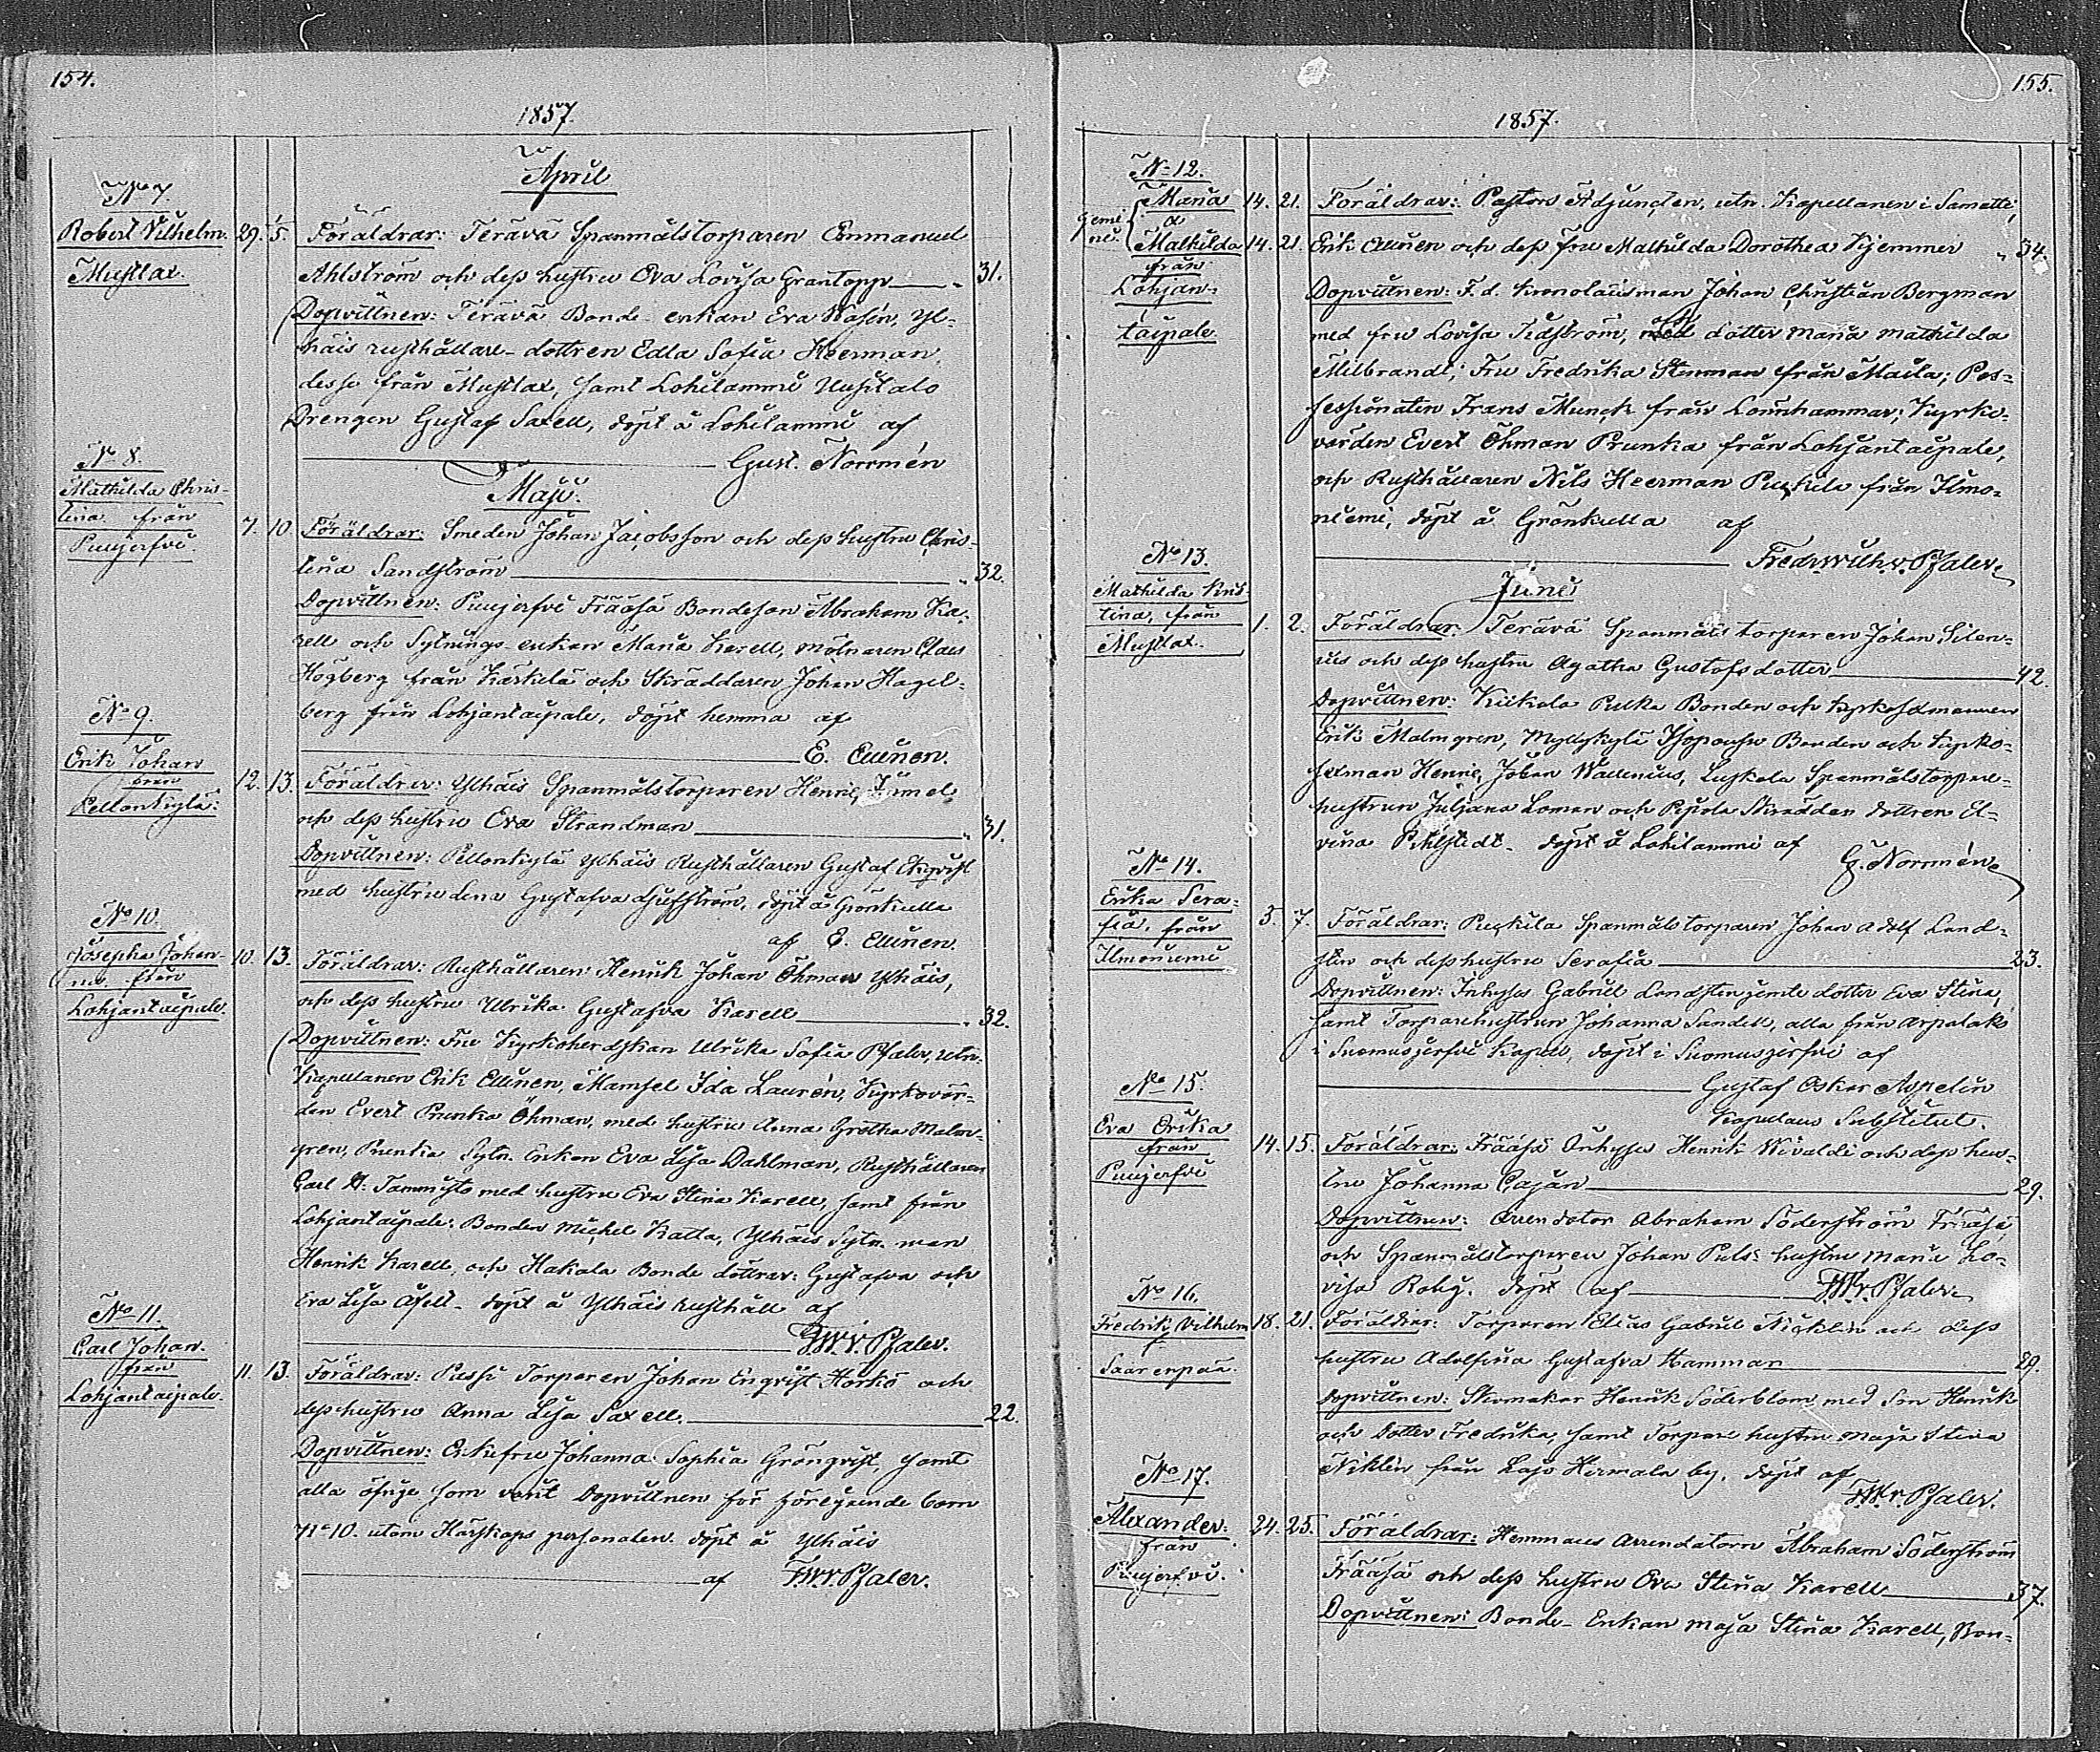 154.
1857.
April
No 7.
Robert Vilhelm. 29. 5. Föräldrar: Terävä Spanmålstorparen Emmanuel
Mustlax. Ahlström och dess hustru Eva Lovisa Grantopp 31.
Dopvittnen: Terävä Bonde-enkan Eva Wasén, Yl-
häis rusthållare-dottren Edla Sofia Heerman,
desse från Mustlax, samt Lohilammi Uusitalo
Drengen Gustaf Saxell, döpt å Lohilammi af
Gust. Norrmén
Maji.
No 8.
Mathilda Chris-
tina från
Puujerfvi. 7. 10. Föräldrar: Smeden Johan Jacobsson och dess hustru Chris-
tina Sandström 32.
Dopvittnen: Puujerfvi Frääsä Bondeson Abraham Ka-
rell och Sytnings-enkan Maria Karell, mölnaren Claes
Högberg från Karkila och Skräddaren Johan Hagel-
berg från Lohjantaipale, döpt hemma af
E. Ellinen.
No 9.
Erik Johan
från
Pellonkylä. 12. 13. Föräldrar: Ylhäis Spanmålstorparen Henric
och dess hustru Eva Strandman 31.
Dopvittnen: Pellonkylä Ylhäis Rusthållaren Gustaf
med hustru Lena Gustafva döpt å Grönkulla
af E. Ellinen.
No 10.
Josepha Johan-
na från
Lohjantaipale. 10. 13. Föräldrar: Rusthållaren Henrik Johan Öhman Ylhäis,
och dess hustru Ulrika Gustafva Karell 32.
Dopvittnen: Fru Kyrkoherdskan Ulrika Sofia Pfaler, utn.
Kapellanen Erik Ellinen, Mamsel Ida Laurén, Kyrkovär-
den Evert Prunka Öhman, med hustru Anna Gretha Malm-
gren, Prunka Sytn. Enkan Eva Lisa Dahlman, Rusthållaren
Carl Tammisto med hustru Eva Stina Karell, samt från
Lohjantaipale: Bonden Michel Katla, Ylhäis Sytn. man
Henrik Karell, och Hakala Bonde döttrar: Gustafva och
Eva Lisa Asell- döpt å Ylhäis rusthåll af
F.W.v. Pfaler.
No 11.
Carl Johan.
från
Lohjantaipale. 11. 13. Föräldrar: Pussi Torparen Johan Enqvist Hörkö och
dess hustru Anna Lisa Saxell. 22.
Dopvittnen: Enkefru Johanna Sophia Grönqvist, samt
alla öfrige som varit Dopvittnen för föregående barn
No 10. utom Härskaps personalen. döpt å Ylhäis
af F.W.v. Pfaler.
155.
1857.
No 12.
Gemi-
ni. Maria 14. 21. Föräldrar: Pastors Adjuncten, utn. Kapellanen i Samatti,
&
Mathilda 14. 21. Erik Ellinen och dess fru Mathilda Dorothea Hjemmer 34.
från
Lohjan-
taipale. Dopvittnen: F.d. Kronolänsman Johan Christian Bergman
med fru Lovisa Tidström, och dotter Maria Mathilda
Milbrandt; Fru Fredrika Stenman från Maila; Pos-
sessionaten Frans Munck från Lönnhammar; Kyrko-
värden Evert Öhman Prunka från Lohjantaipale,
och Rusthållaren Nils Heerman Puckila från Ilmo-
niemi, döpt å Grönkulla af
Fredr. Wilh. v. Pfaler.
Juni
No 13.
Mathilda Kris-
tina, från
Mustlax. 1. 2. Föräldrar: Terävä Spanmåls torparen Johan Silen-
ius och dess hustru Agatha Gustofsdotter 42.
Dopvittnen: Kiikala Pukka Bonden och kyrkosexmannen
Erik Malmgren, Myllykylä Bonden och kyrko-
sexman Henric Johan Wallenius, Luskala Spanmålstorpare-
hustrun Juljana Loman och Pipola Skrädden dottren El-
vina Pihlstedt- döpt å Lohilammi af
G. Norrmén.
No 14.
Erika Sera-
fia, från
Ilmoniemi 5. 7. Föräldrar: Puckila Spanmåls torparen Johan Adolf Land-
sten och dess hustru Serafia 23.
Dopvittnen: Inhyses Gabriel Landsten jemte dotter Eva Stina,
samt Torparehustrun Johanna Sandell, alla från Arpalaks
i Suomusjerfvi Kapell, döpt i Suomusjerfvi af
Gustaf Oskar Aspelin
Kapellans Substitut.
No 15.
Eva Erika
från
Puujerfvi 14. 15. Föräldrar: Frääsä Inhyses Henrik Wivaldi och dess hus-
tru Johanna Cajan 29.
Dopvittnen: Arendator Abraham Söderström Frääsä,
och Spanmålstorparen Johan Puls: hustru Maria Lo-
visa Roby. döpt af F.W.v. Pfaler.
No 16.
Fredrik Vilhelm
f.
Saarenpää. 18. 21. Föräldrar: Torparen Elias Gabriel Nicklin och dess
hustru Adolfina Gustafva Hammar 29.
Dopvittnen: Skomakar Henrik Söderblom med Son Henrik
och Dotter Fredrika, samt Torpare hustru Maja Stina
Niklin från Lojo Hermala by. döpt af
F.W.v. Pfaler.
No 17.
Alexander.
från
Puujerfvi. 24. 25. Föräldrar: Hemmans Arrendatorn Abraham Söderström
Frääsä och dess hustru Eva Stina Karell 37.
Dopvittnen: Bonde-Enkan Maja Stina Karell, Bon-